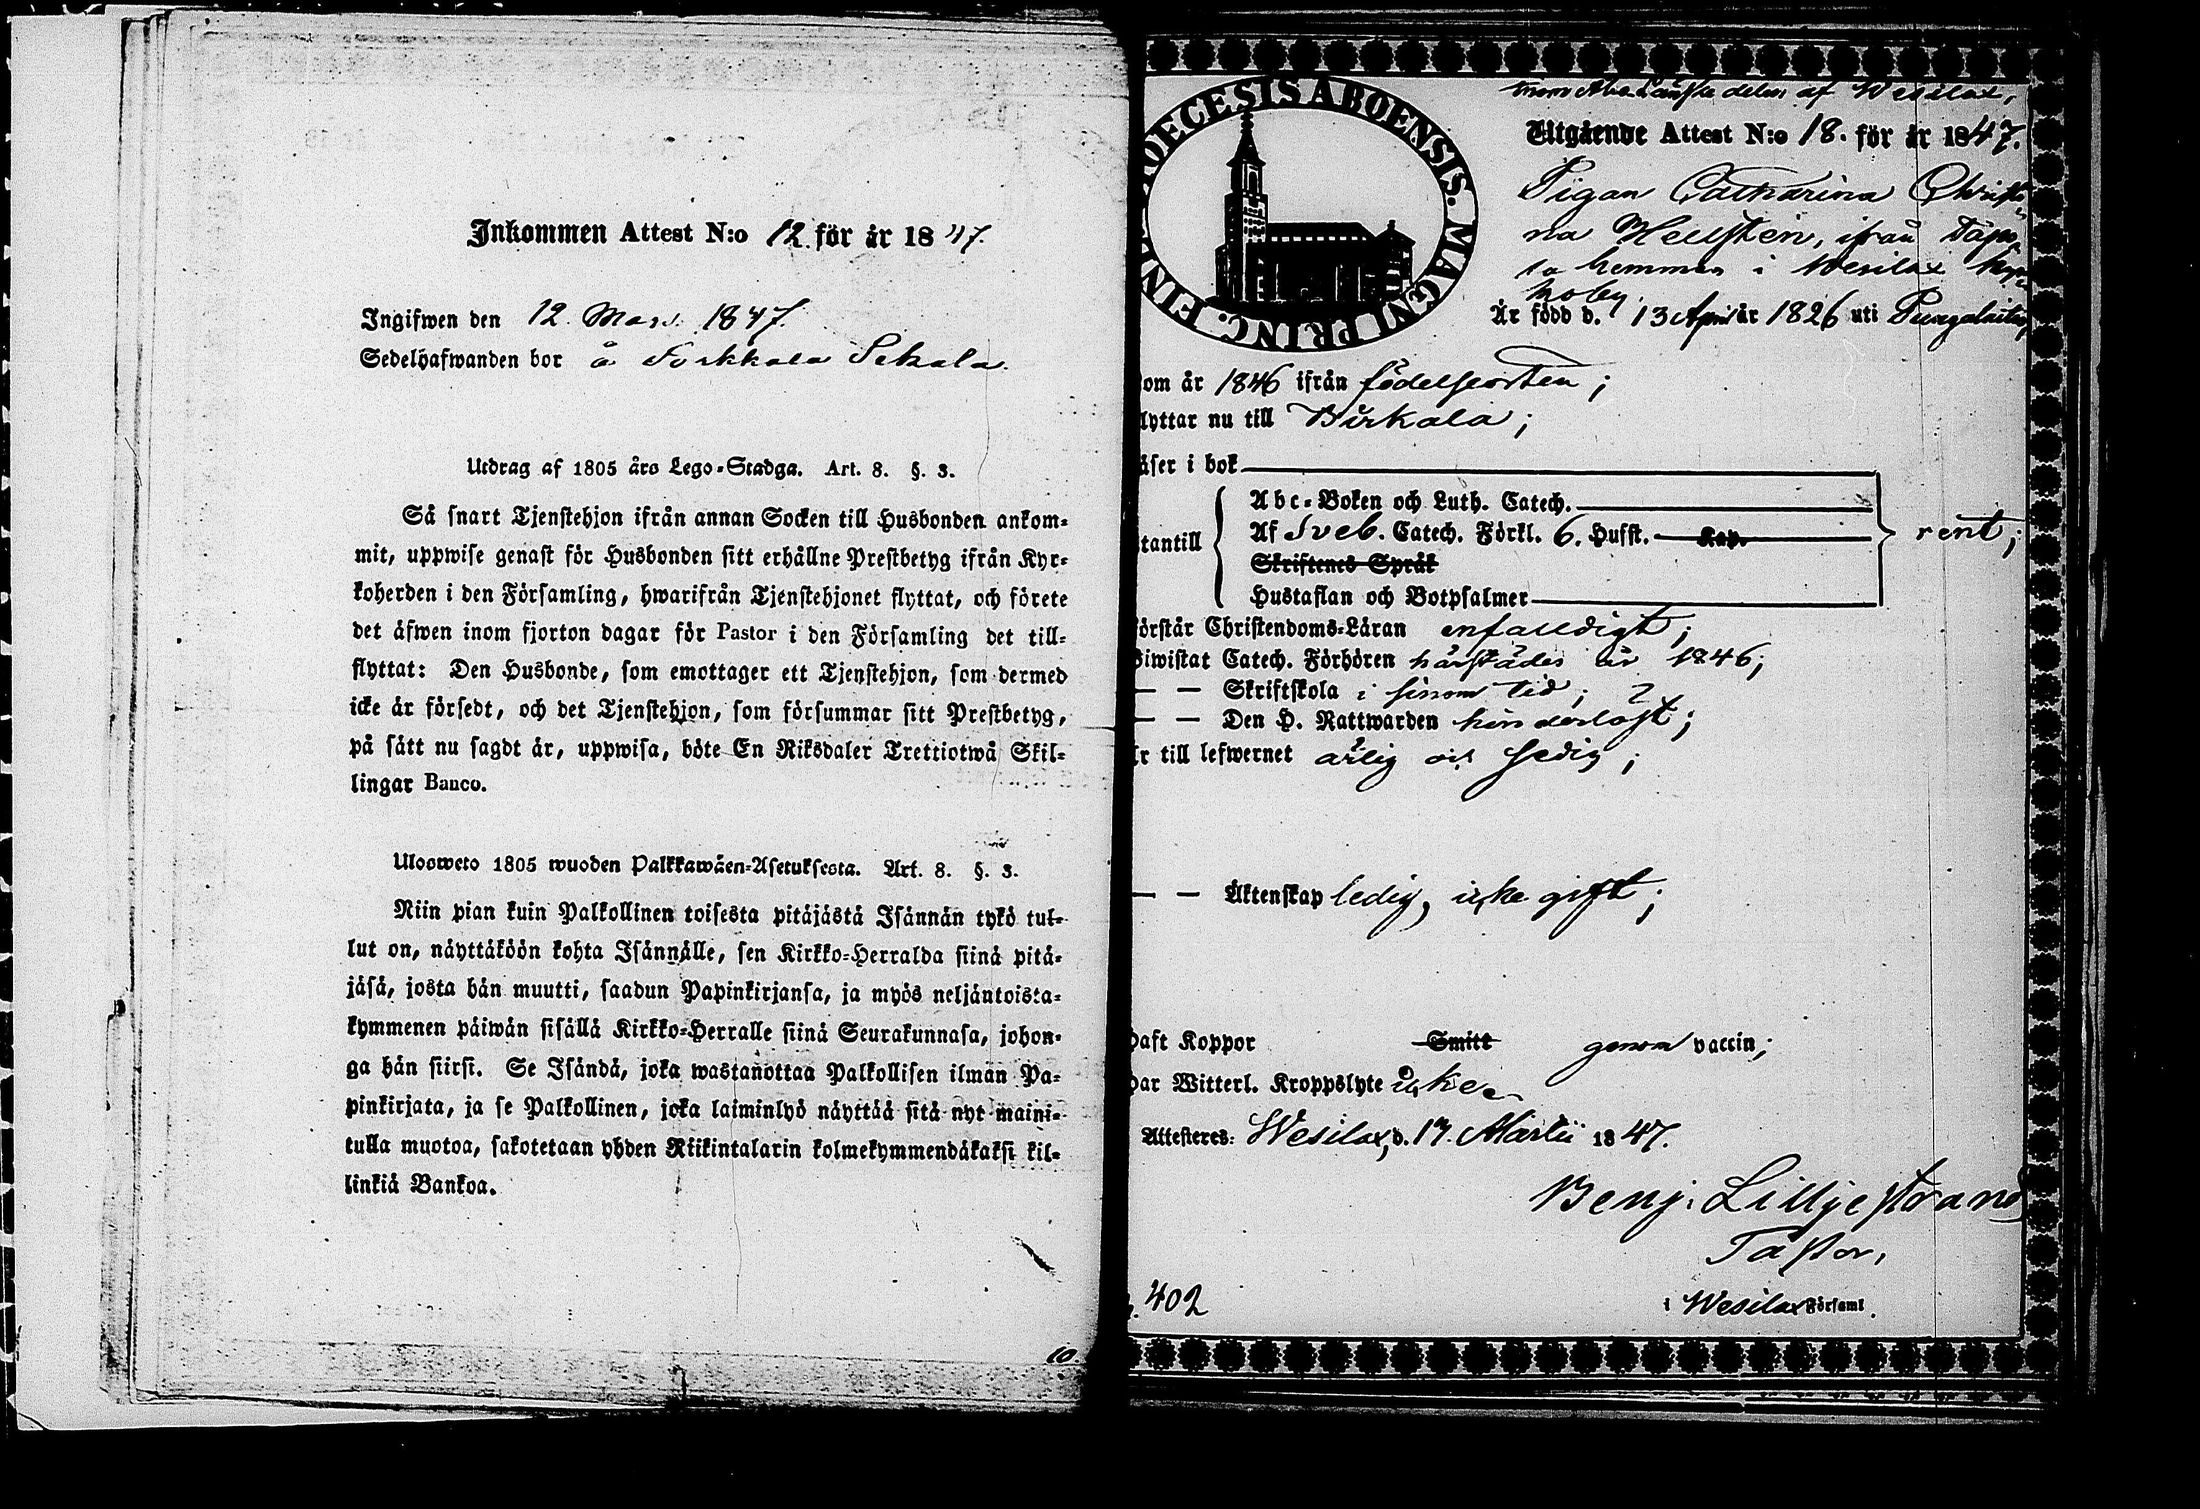 Inkommen Attest N:o 12. för år 1847.
Ingifwen den 12. Mars. 1847.
Sedelhafwanden bor å Sorkkala Sekala.
Utdrag af 1805 års Lego-Stadga. Art. 8. §. 3.
Så snart Tjenstehjon ifrån annan Socken till Husbonden ankom-
mit, uppwise genast för Husbonden sitt erhållne Prestbetyg ifrån Kyr-
koherden i den Församling, hwarifrån Tjenstehjonet flyttat, och förete
det äfwen inom fjorton dagar för Pastor i den Församling det till-
flyttat: Den Husbonde, som emottager ett Tjenstehjon, som dermed
icke är försedt, och det Tjenstehjon, som försummar sitt Prestbetyg,
på sätt nu sagdt är, uppwisa, böte En Riksdaler Trettiotwå Skil-
lingar Banco.
Ulosweto 1805 wuoden Palkkawäen-Asetuksesta. Art. 8. §. 3.
Niin pian kuin Palkollinen toisesta pitäjästä Isännän tykö tul-
lut on, näyttäköön kohta Isännälle, sen Kirkko-Herralda siinä pitä-
jäsä, josta hän muutti, saadun Papinkirjansa, ja myös neljäntoista-
kymmenen päiwän sisällä Kirkko-Herralle siinä Seurakunnasa, johon-
ga hän siirsi. Se Isändä, joka wastanottaa Palkollisen ilman Pa-
pinkirjata, ja se Palkollinen, joka laiminlyö näyttää sitä nyt maini-
tulla muotoa, sakotetaan yhden Riikintalarin kolmekymmendäkaksi kil-
linkiä Bankoa.
10
DIOECESIS ABOENSIS. MAGNI PRINC. FINL.
delen af Wesilax,
Utgående Attest N:o 18. för år 1847.
Pigan Catharina Christi-
na Hellsten, ifrån
hemman i Wesilax
by.
Är född d. 13 April år 1826 uti Pungalaitio,
om år 1846 ifrån födelseorten;
lyttar nu till Birkala;
äser i bok
tantill
Abc-Boken och Luth. Catech.
Af Sveb. Catech. Förkl. 6. Hufst. Kap.
Skriftenes Språk
Hustaflan och Botpsalmer
rent;
örstår Christendoms-Läran enfalldigt;
iwistat Catech. Förhören härstädes år 1846;
— — Skriftskola i sinom tid;
— — Den H. Nattwarden hinderlöst;
r till lefwernet ärlig och sedig;
— — Äktenskap ledig, icke gift;
aft Koppor Smitt genom vaccin;
ar Witterl. Kroppslyte icke
Attesteres: Wesilax, d. 17. Martii 1847.
Benj. Lilljestrand
Pastor,
i Wesilax Församl.
402